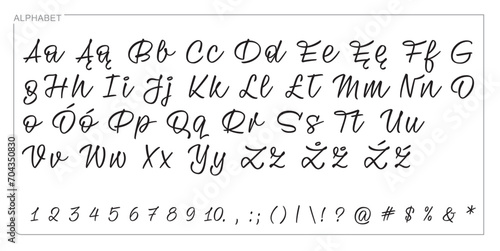 ALPHABET
Aa Ąą Bb Cc Dd Ee Ęę Ff G
g Hh Ii Jj Kk Ll Łł Mm Nn O
o Óó Pp Qq Rr Ss Tt Uu
Vv Ww Xx Yy Zz Żż Źź
1 2 3 4 5 6 7 8 9 10. , : ; ( ) | \ ! ? @ # $ % & *
Adobe Stock | #704350830